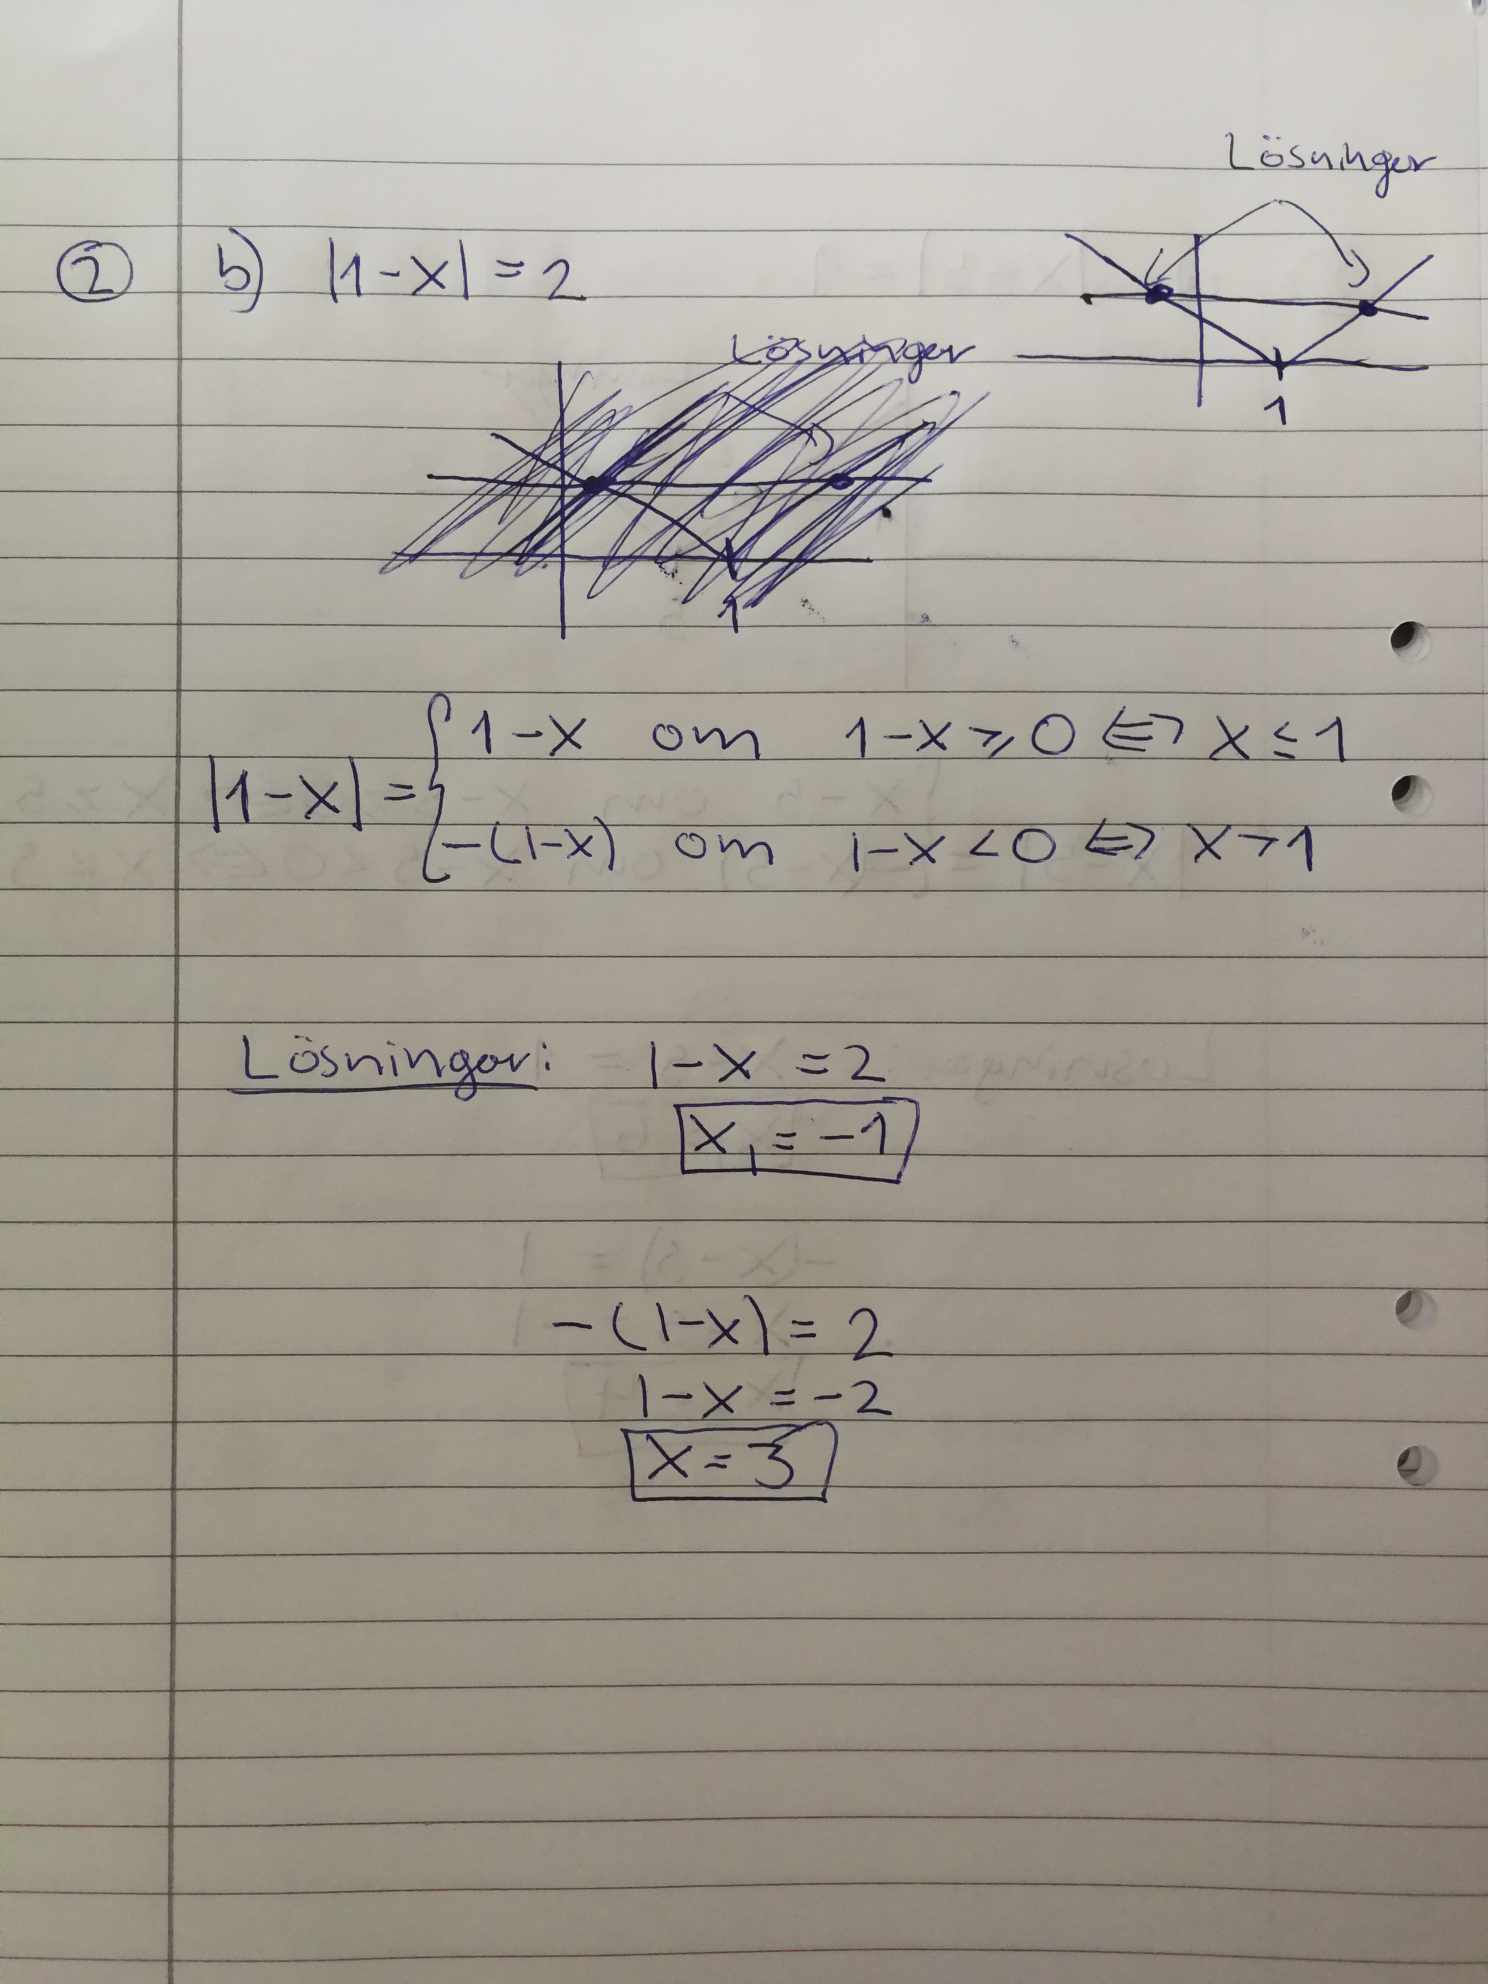 Lösningar
② b) |1-x| = 2
1
Lösningar
1
|1-x| = { 1-x om 1-x ≥ 0 ⇔ x ≤ 1
-(1-x) om 1-x < 0 ⇔ x > 1
Lösningar: 1-x = 2
x₁ = -1
-(1-x) = 2
1-x = -2
x = 3